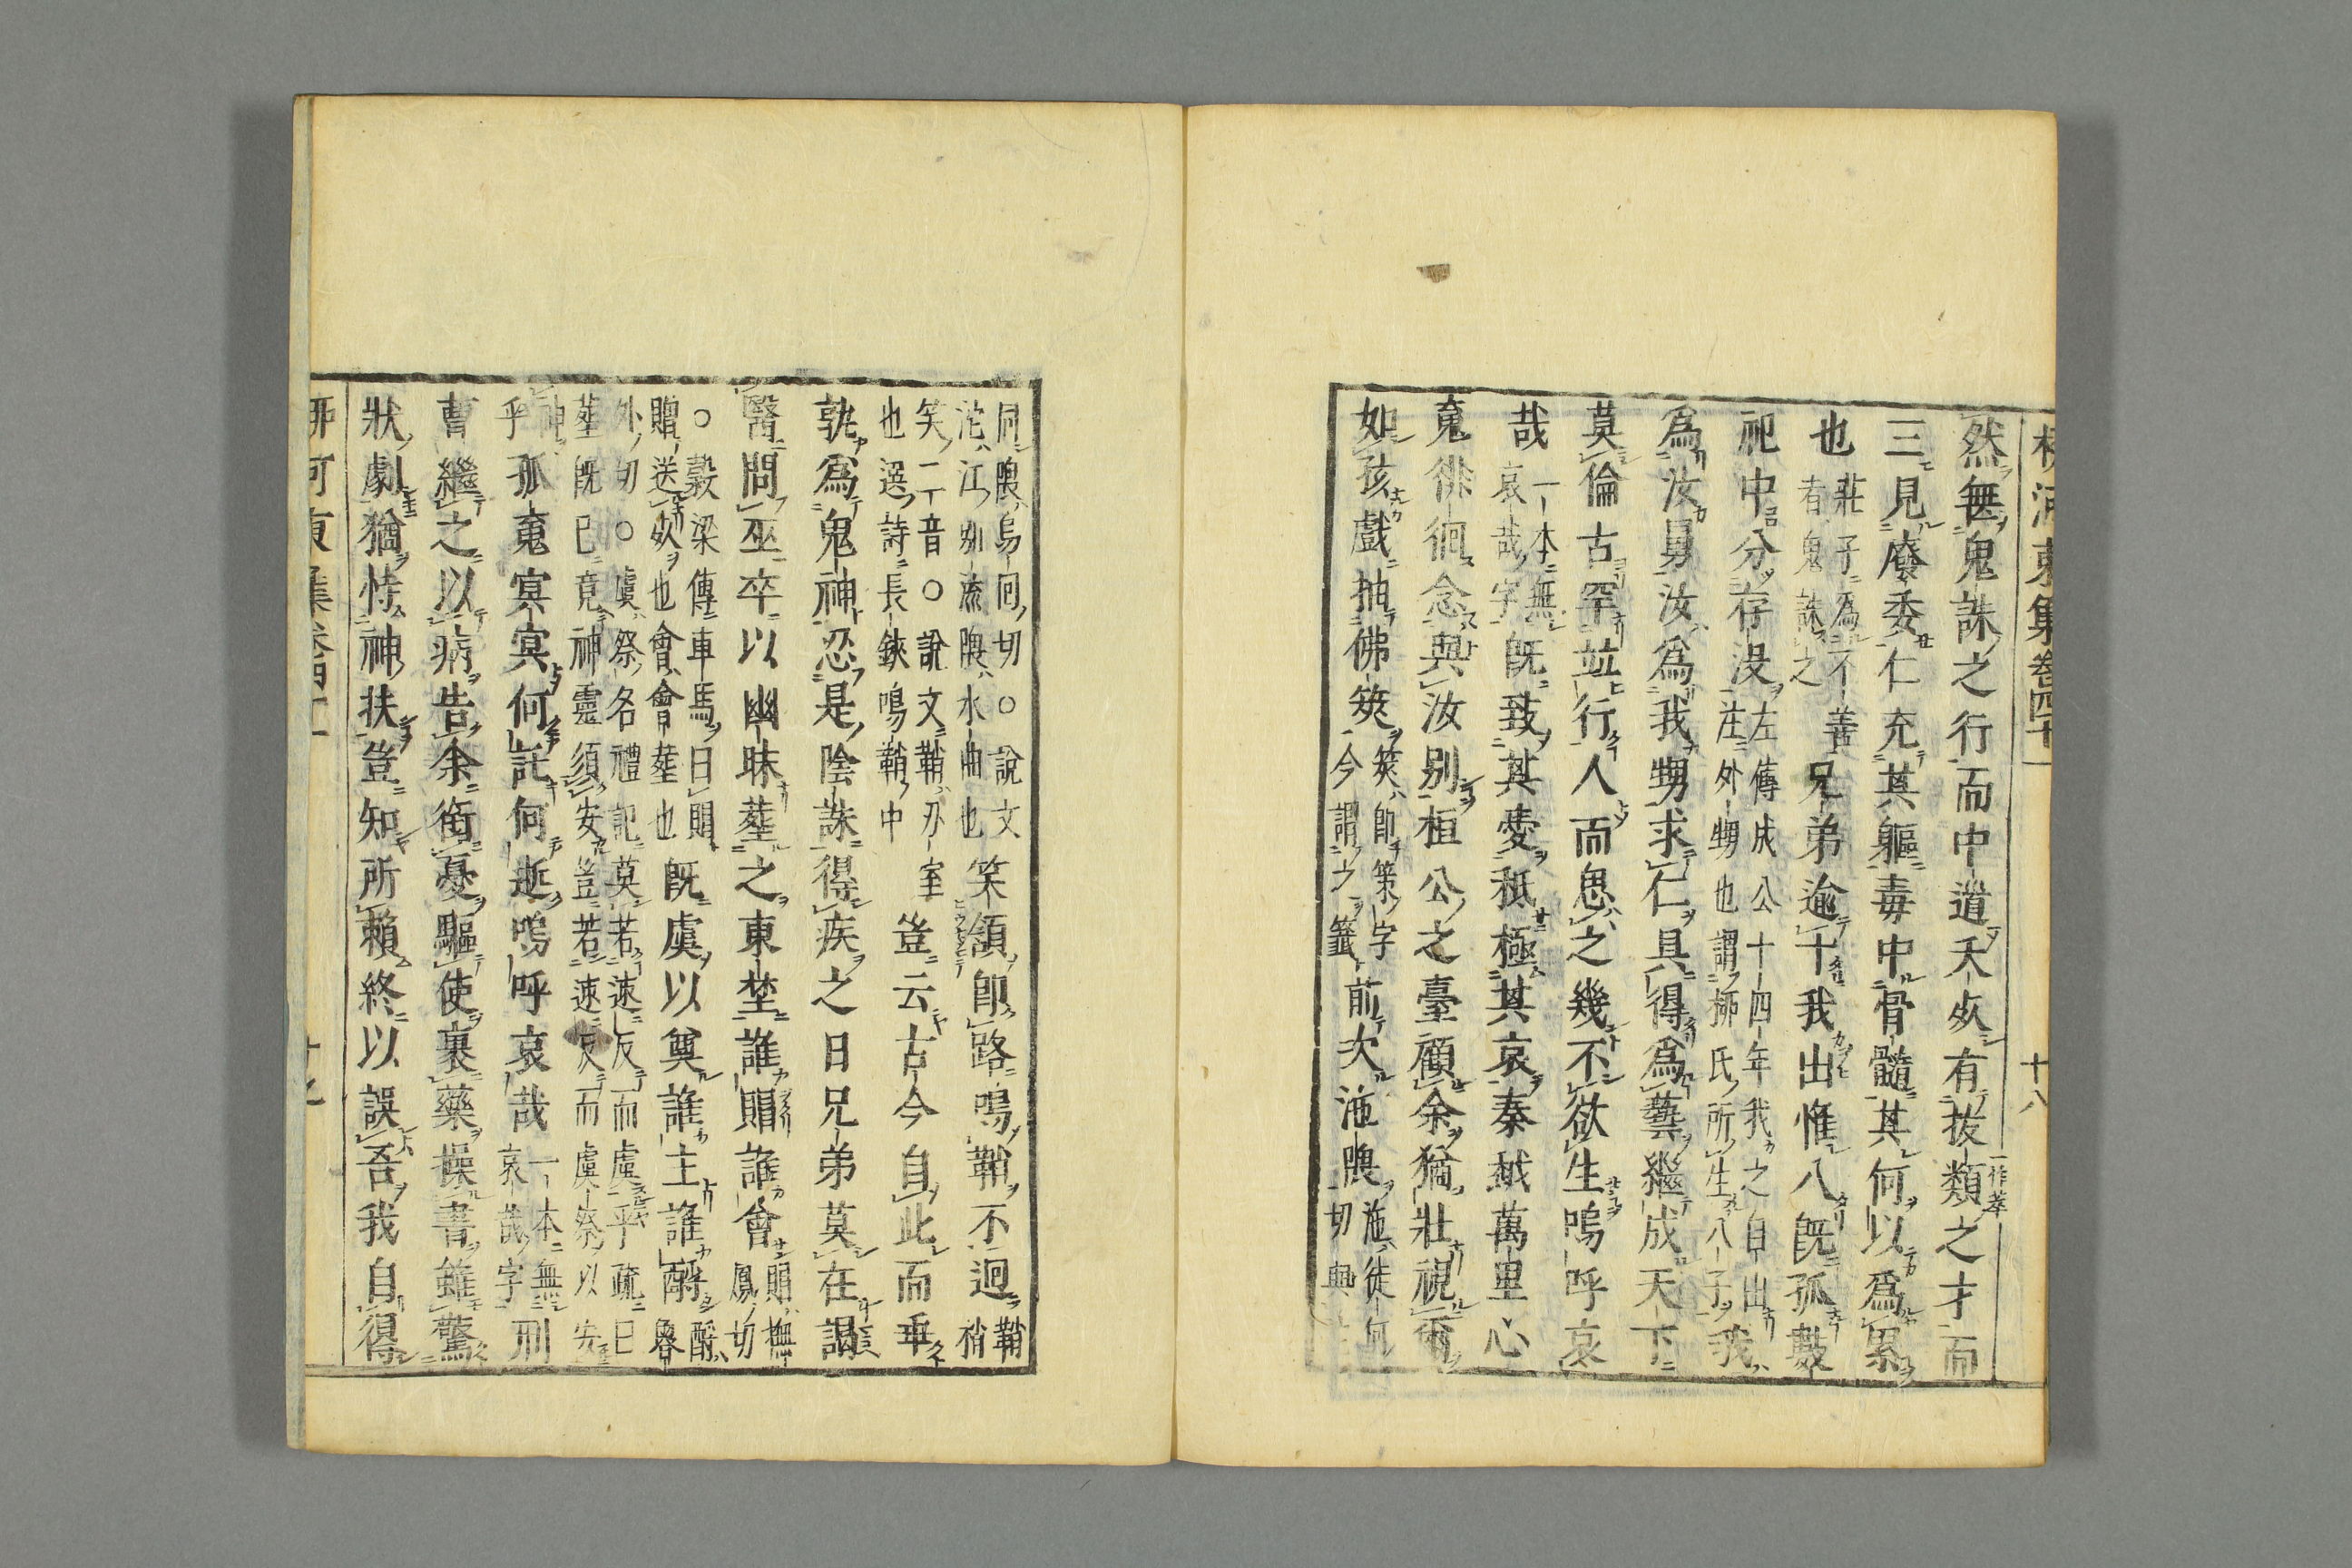 河東集卷四十一
十八
然無鬼誅之行而中道夭死有拔類一作萃之才而
三見廢委仁充其軀毒中骨髓其何以爲累
也莊子爲不善者鬼誅之兄弟逾十我出惟八旣孤數
祀中分存没左傳成公十四年我之自出注外甥也謂柳氏所生八子我
爲汝舅汝爲我甥求仁具得爲藝繼成天下
莫倫古罕並行人而思之幾不欲生嗚呼哀
哉一本無哀哉字旣致其愛秖極其哀秦越萬里心
䰟徘徊念與汝別桓公之臺顧余猶壯視爾
如孩戲抽佛筴筴即策字今謂之籤前次沲㶊施徒何切㶊
何㶊烏何切○說文沱江別流㶊水曲也笑頷即路鳴鞘不迴鞘梢
笑二音○說文鞘刀室也選詩長鋏鳴鞘中豈云古今自此而乖
孰爲鬼神忍是陰誅得疾之日兄弟莫在謁
醫問巫卒以幽昧葬之東埜誰賵誰會賵撫鳳切
○穀梁傳車馬曰賵贈送死也會會葬也旣虞以奠誰主誰酹酹魯
外切○虞祭名禮記莫若速反而虞乎疏曰葬旣已竟神靈須安豈若速反而虞祭以安
神乎孤䰟冥冥何託何逝嗚呼哀哉一本無哀哉字刑
曹繼之以病告余銜憂驅使裹藥操書雖驚
狀劇猶恃神扶豈知所賴終以誤吾我自得
柳河東集卷四十一